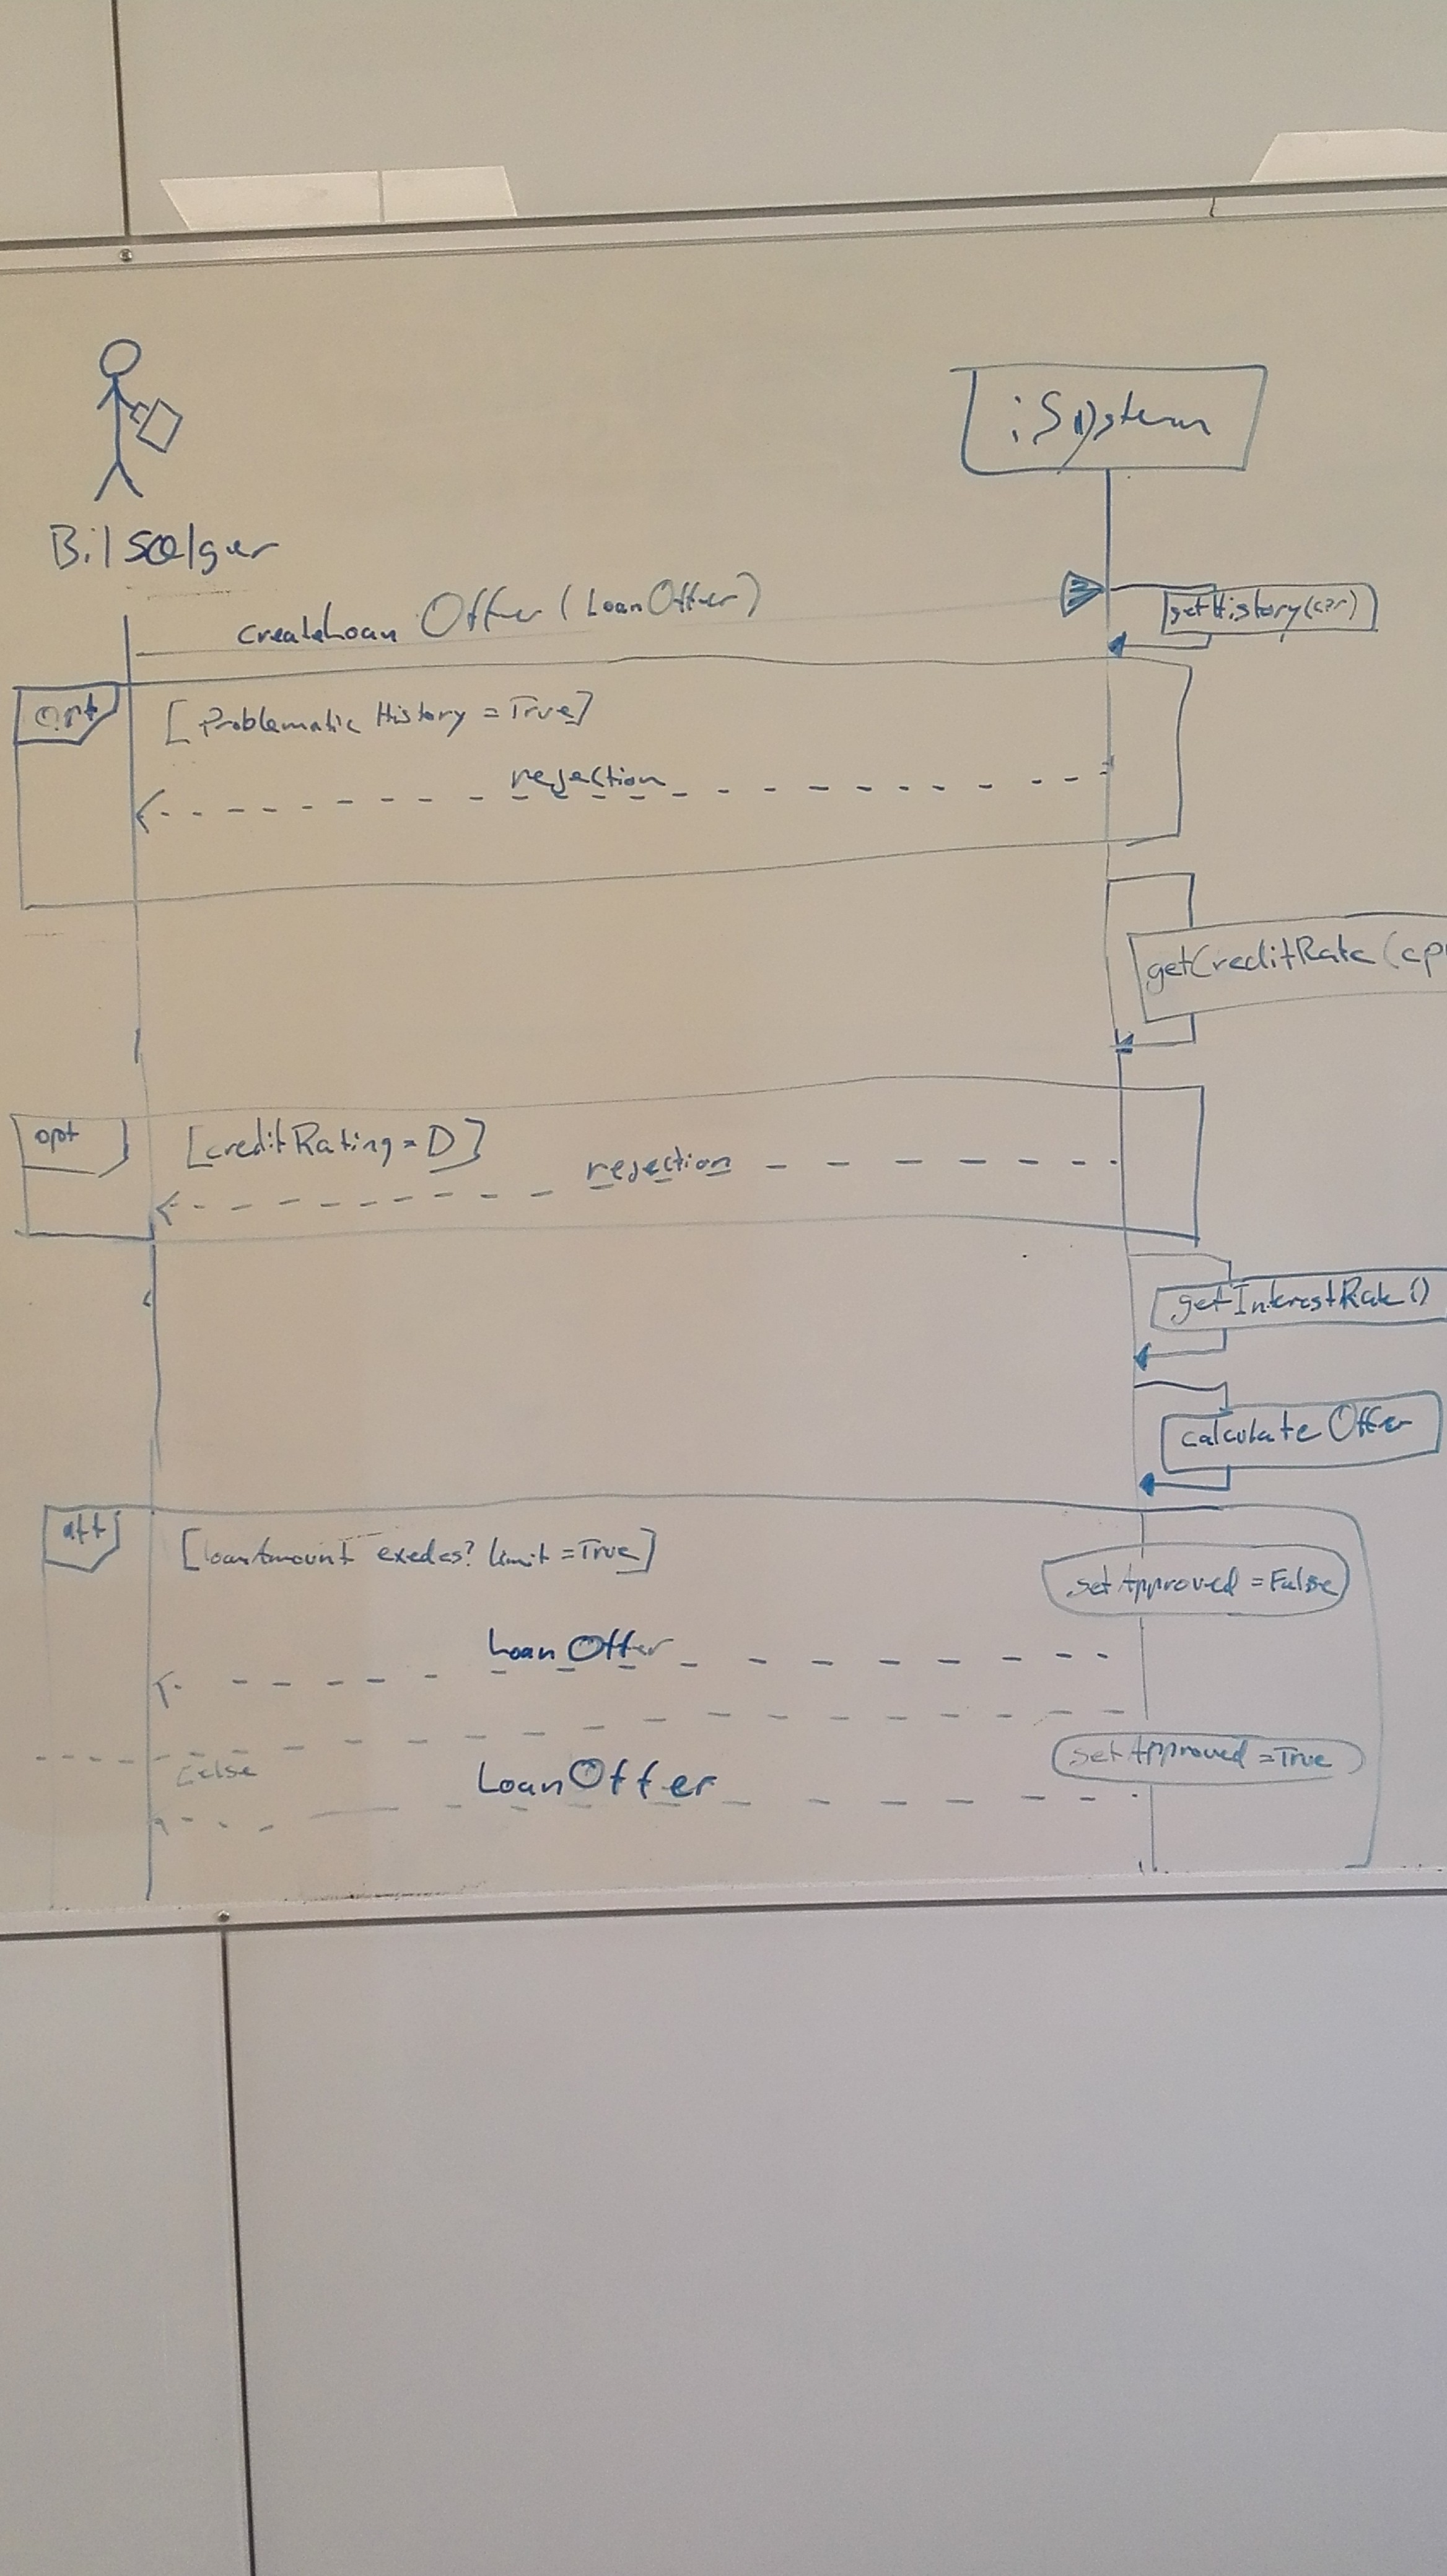 :System
Bilsælger
createLoanOffer(LoanOffer)
getHistory(cpr)
opt
[ProblematicHistory=True]
rejection
getCreditRate(cp
opt
[creditRating=D]
rejection
getInterestRate()
calculateOffer
alt
[loanAmount exedes? limit=True]
setApproved=False
LoanOffer
setApproved=True
[else
LoanOffer